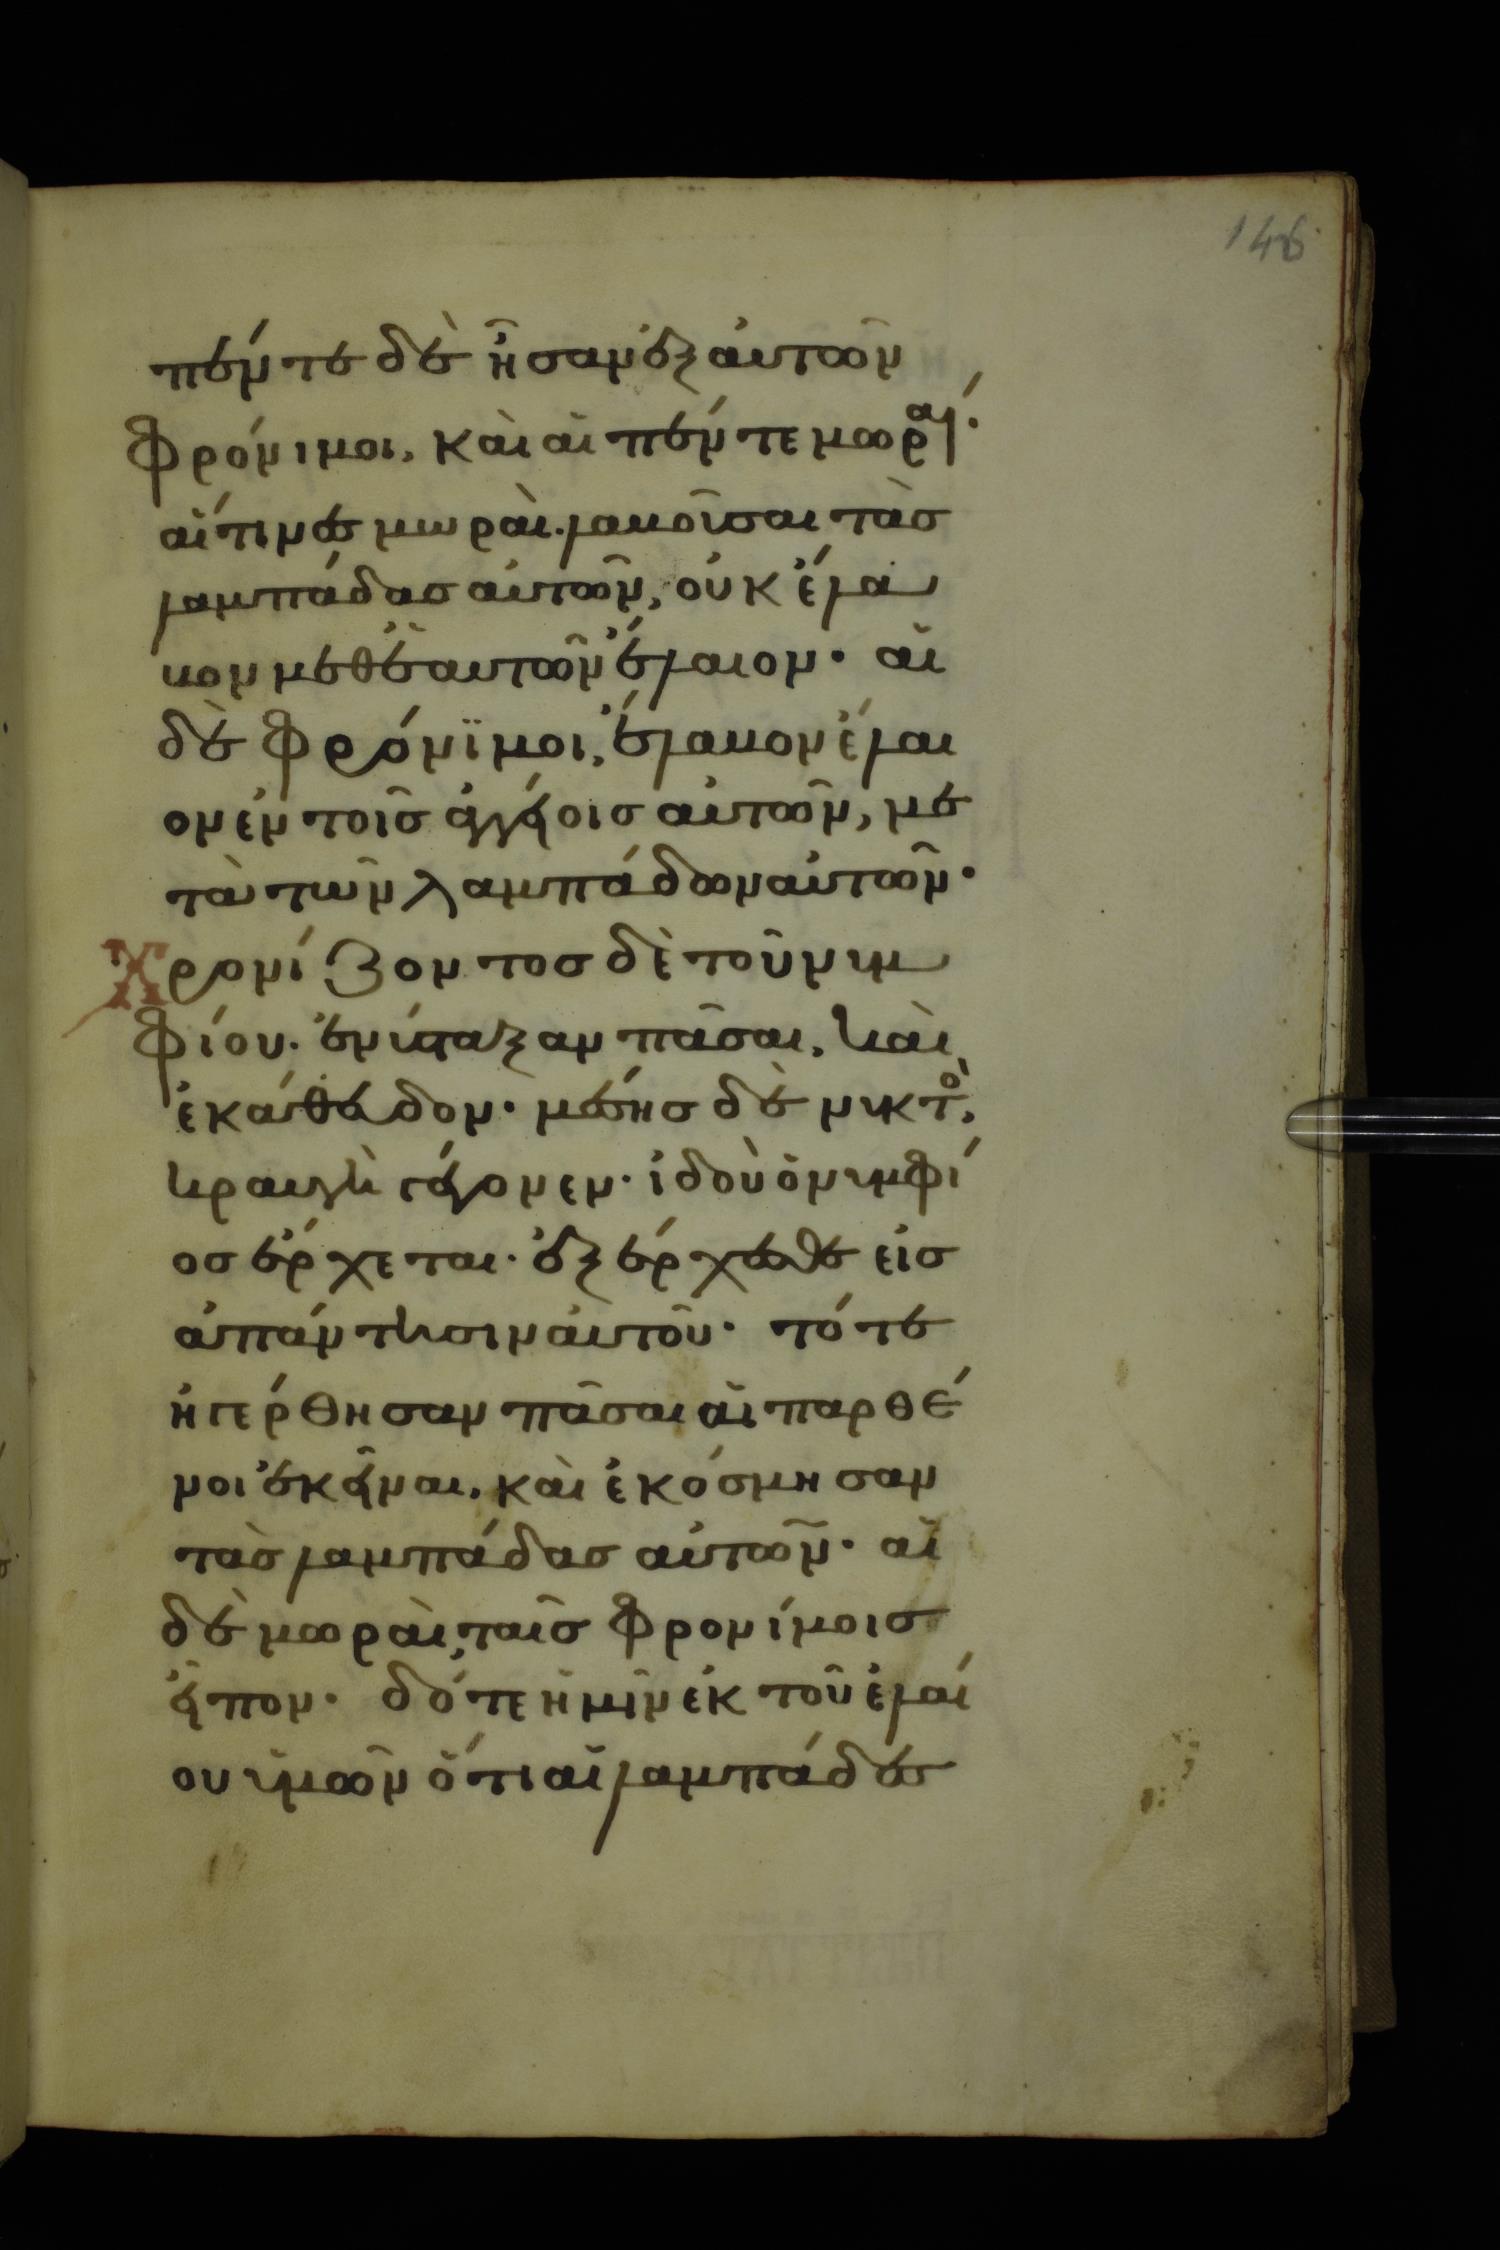 146
πέντε δὲ ἦσαν ἐξ αὐτῶν
φρόνιμοι, καὶ αἱ πέντε μωραί·
αἵτινες μωραὶ. λαβοῦσαι τὰσ
λαμπάδασ αὐτῶν, οὐκ ἔλα
βον μεθ ἑαυτῶν ἔλαιον· αἱ
δὲ φρόνϊμοι, ἔλαβον ἔλαι
ον ἐν τοῖσ ἀγγείοισ αὐτῶν, με
τὰ τῶν λαμπάδων αὐτῶν·
Χρονίζοντοσ δὲ τοῦ νυμ
φίου. ἐνύσταξαν πᾶσαι, καὶ
ἐκάθευδον· μέσησ δὲ νυκτὸ,
κραυγὴ γέγονεν· ἰδοὺ ὁ νυμφί
οσ ἔρχεται· ἐξέρχεσθε εἰσ
ἀπάντησιν αὐτοῦ· τότε
ἠγέρθησαν πᾶσαι αἱ παρθέ
νοι ἐκεῖναι, καὶ ἐκόσμησαν
τὰσ λαμπάδασ αὐτῶν· αἱ
δὲ μωραὶ, ταῖσ φρονίμοισ
εἶπον· δότε ἡμῖν ἐκ τοῦ ἐλαί
ου ὑμῶν ὅτι αἱ λαμπάδες